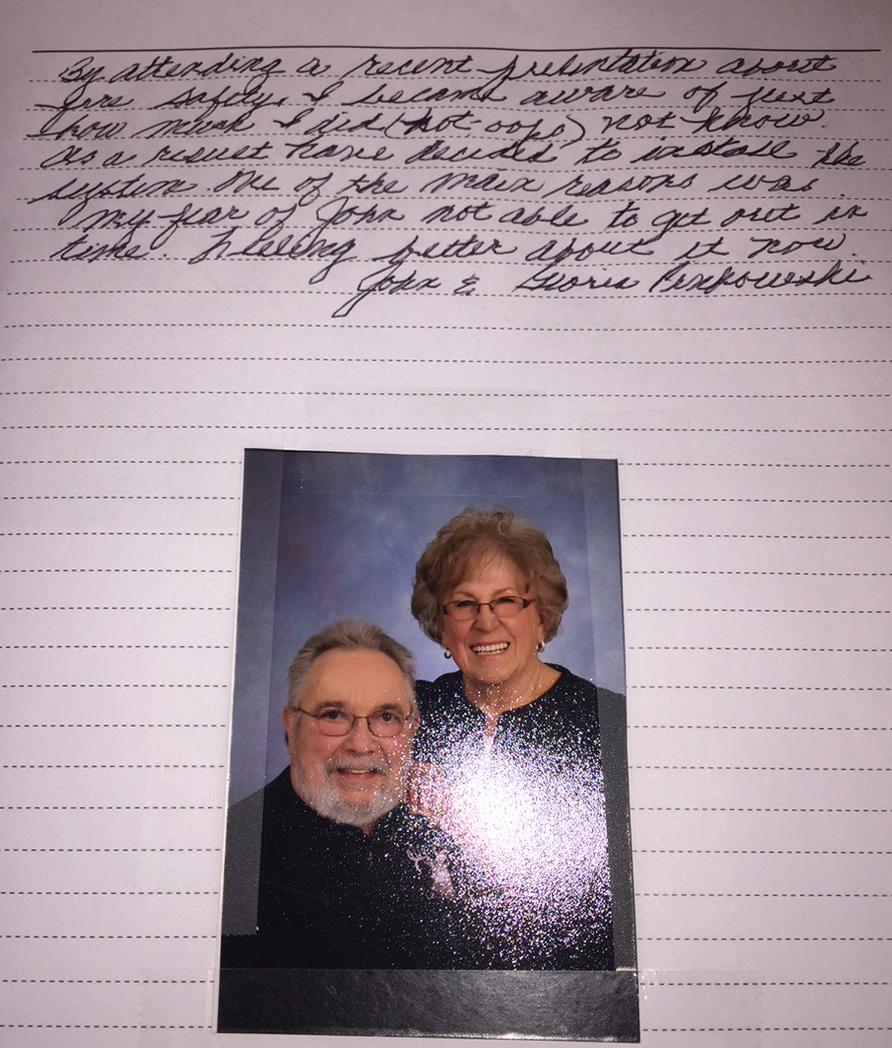 By attending a recent presentation about
fire safety, I became aware of just
how much I did (not-oops) not know.
As a result have decided to install the
system. One of the main reasons was
my fear of John not able to get out in
time. Feeling better about it now.
John & Gloria